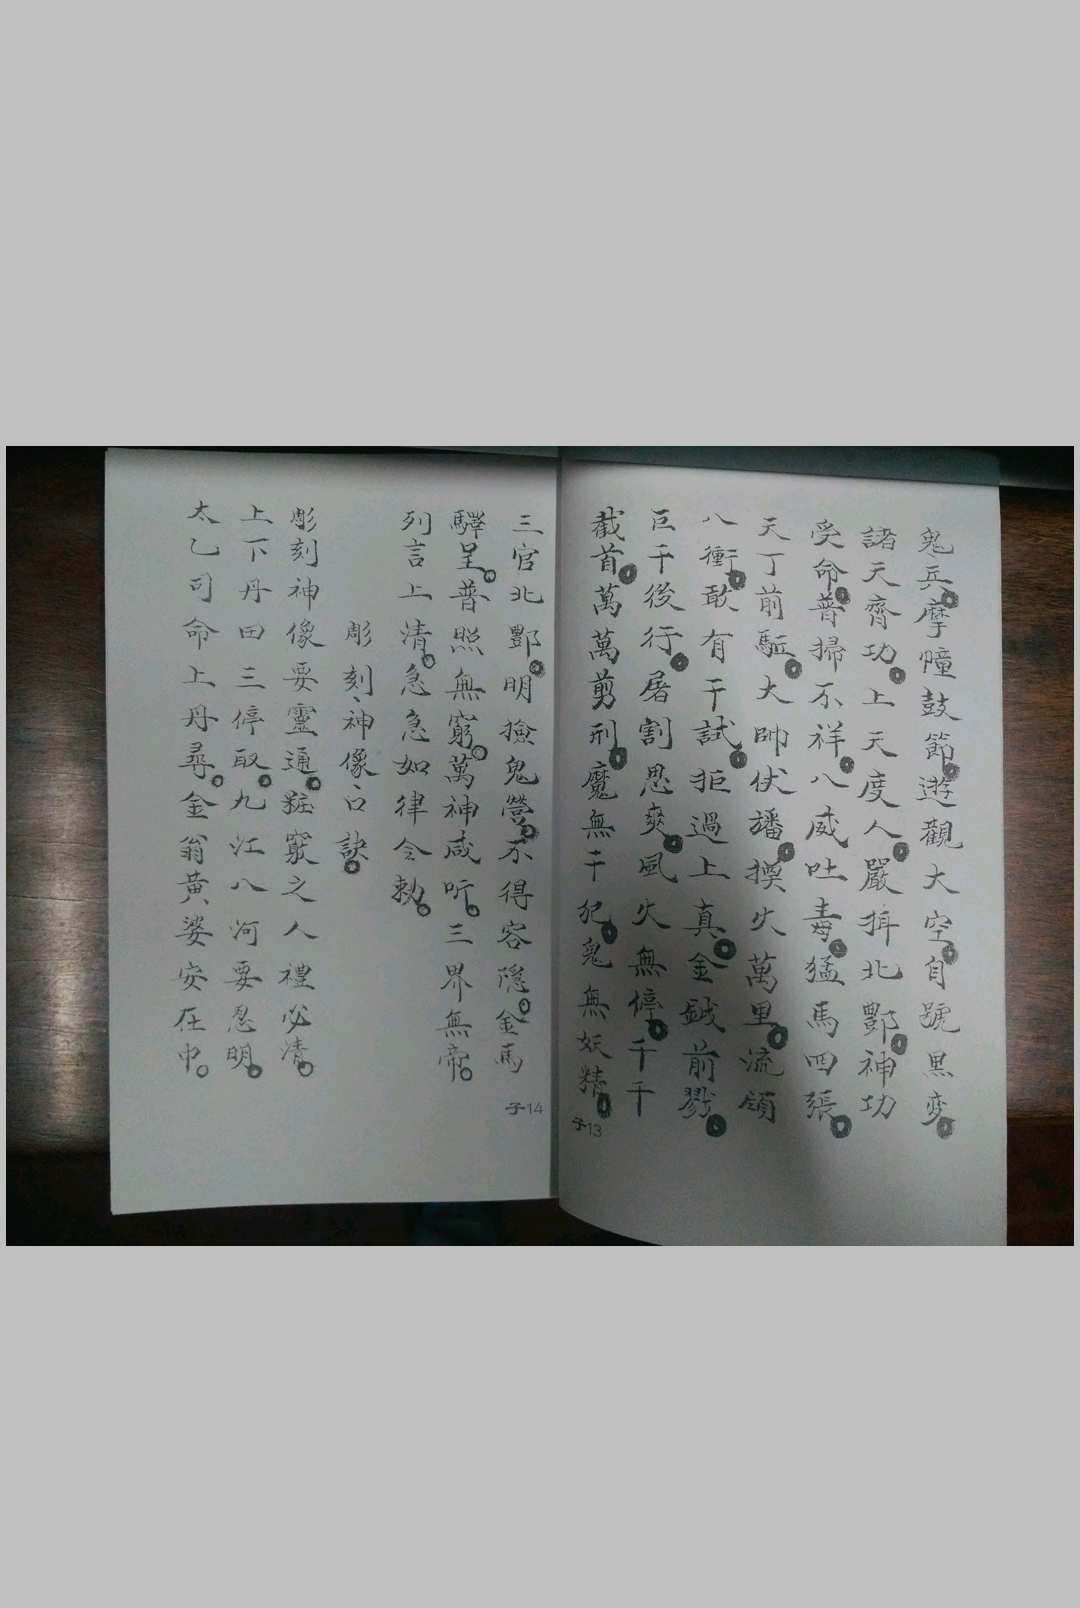 鬼兵摩幢鼓節遊觀大空自號黑変
諸天齊功上天度人嚴揖北酆神功
受命普掃不祥八威吐毒猛馬四張
天丁前駈大帥伏旛擲火萬里流領
八衝敢有干試拒過上真金鉞前戮
巨千後行屠割思爽風火無停千千
截首萬萬剪刑魔無干犯鬼無妖精
子13
三官北酆明撿鬼營不得容隱金馬
驛呈普照無窮萬神咸听三界無帝
列言上清急急如律令勅
彫刻神像口訣
彫刻神像要靈通粧竅之人禮必清
上下丹田三停取九江八河要忍明
太乙司命上丹尋金翁黃婆安在中
子14